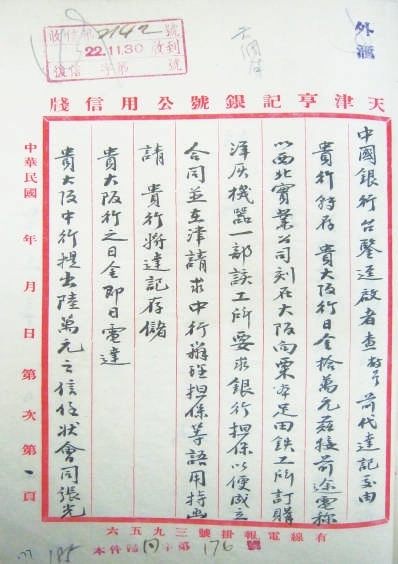 外滙
收信第2142號
22.11.30收到
復信 字第 號
天津亨記銀號公用信牋
中國銀行台鑒逕啟者查敝號前代達記交由
貴行將存 貴大阪行日金拾萬元茲接前途電稱
以西北實業公司刻在大阪向栗本足田鉄工所訂購
洋灰機器一部該工所要求銀行担保以便成立
合同並在津請求中行辦理担保等語用特函
請 貴行將達記存儲
貴大阪行之日金即日電達
貴大阪中行提出陸萬元之信任狀會同張光
中華民國 年 月 日第 次第一頁
有線電報掛號三九五六
本件歸 同 字第176號
185